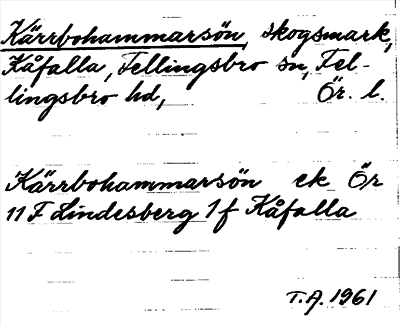 Kärrbohammarsön, skogsmark,
Kåfalla, Fellingsbro sn, Fel-
lingsbro hd, Ör. l.
Kärrbohammarsön ek Ör
11 F Lindesberg 1 f Kåfalla
T.A. 1961